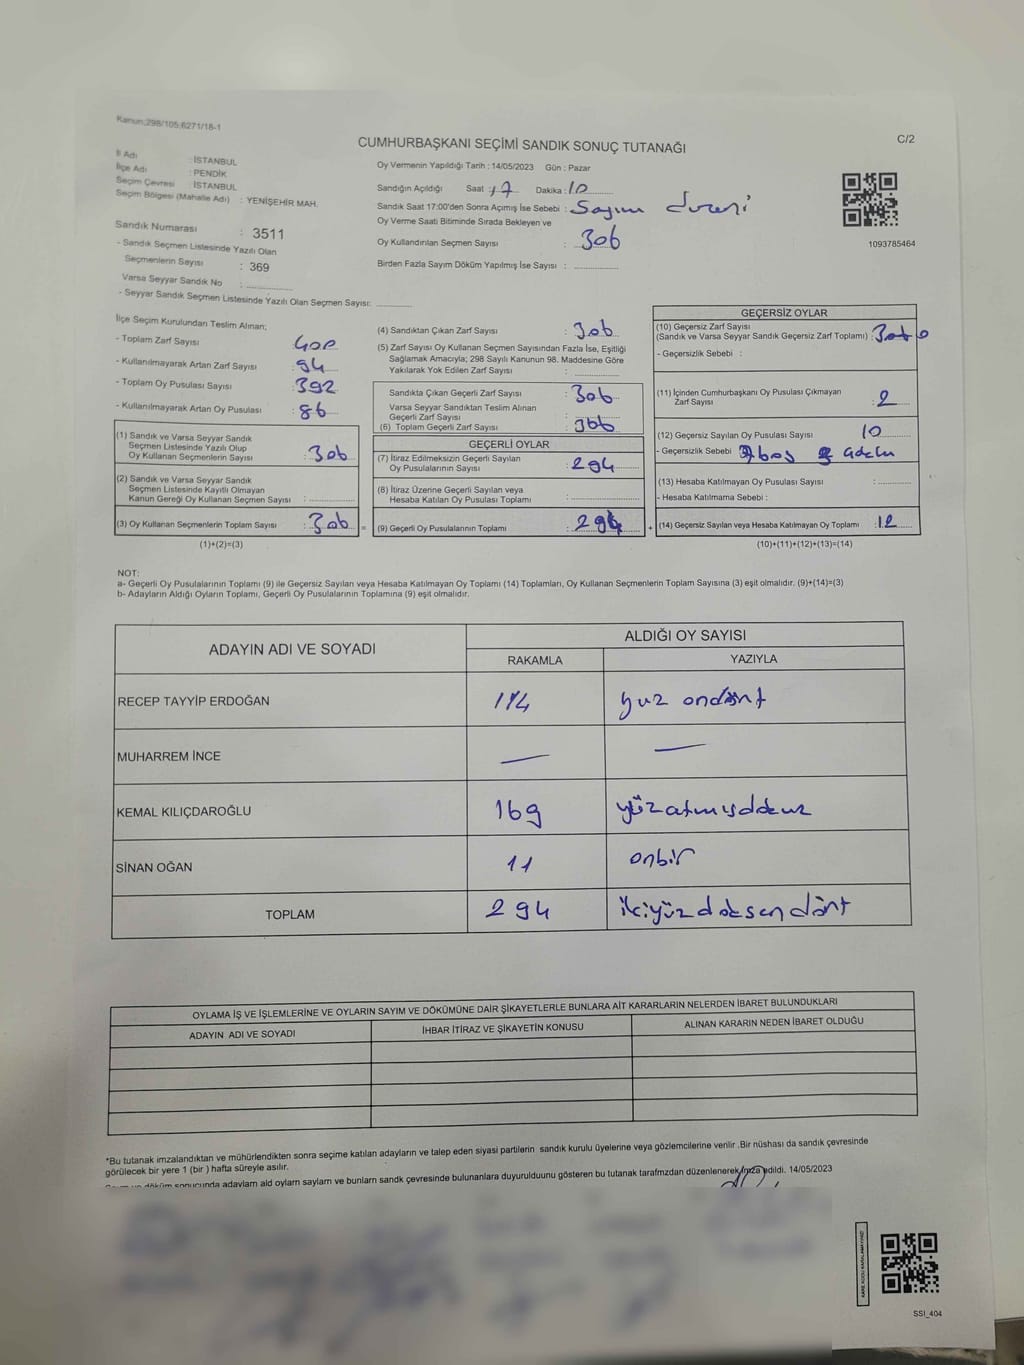 Kanun;298/105;6271/18-1
CUMHURBAŞKANI SEÇİMİ SANDIK SONUÇ TUTANAĞI
C/2
İl Adı : İSTANBUL
İlçe Adı : PENDİK
Seçim Çevresi : İSTANBUL
Seçim Bölgesi (Mahalle Adı) : YENİŞEHİR MAH.
Sandık Numarası : 3511
- Sandık Seçmen Listesinde Yazılı Olan
Seçmenlerin Sayısı : 369
Varsa Seyyar Sandık No :
- Seyyar Sandık Seçmen Listesinde Yazılı Olan Seçmen Sayısı:
Oy Vermenin Yapıldığı Tarih : 14/05/2023 Gün : Pazar
Sandığın Açıldığı Saat : 17 Dakika : 10
Sandık Saat 17:00'den Sonra Açımış İse Sebebi : Sayım düzeni
Oy Verme Saati Bitiminde Sırada Bekleyen ve
Oy Kullandırılan Seçmen Sayısı : 306
Birden Fazla Sayım Döküm Yapılmış İse Sayısı :
1093785464
İlçe Seçim Kurulundan Teslim Alınan;
- Toplam Zarf Sayısı : 400
- Kullanılmayarak Artan Zarf Sayısı : 94
- Toplam Oy Pusulası Sayısı : 392
- Kullanılmayarak Artan Oy Pusulası : 86
(1) Sandık ve Varsa Seyyar Sandık
Seçmen Listesinde Yazılı Olup
Oy Kullanan Seçmenlerin Sayısı : 306
(2) Sandık ve Varsa Seyyar Sandık
Seçmen Listesinde Kayıtlı Olmayan
Kanun Gereği Oy Kullanan Seçmen Sayısı :
(3) Oy Kullanan Seçmenlerin Toplam Sayısı : 306 =
(1)+(2)=(3)
(4) Sandıktan Çıkan Zarf Sayısı : 306
(5) Zarf Sayısı Oy Kullanan Seçmen Sayısından Fazla İse, Eşitliği
Sağlamak Amacıyla; 298 Sayılı Kanunun 98. Maddesine Göre
Yakılarak Yok Edilen Zarf Sayısı :
Sandıkta Çıkan Geçerli Zarf Sayısı : 306
Varsa Seyyar Sandıktan Teslim Alınan
Geçerli Zarf Sayısı :
(6) Toplam Geçerli Zarf Sayısı : 306
GEÇERLİ OYLAR
(7) İtiraz Edilmeksizin Geçerli Sayılan
Oy Pusulalarının Sayısı : 294
(8) İtiraz Üzerine Geçerli Sayılan veya
Hesaba Katılan Oy Pusulası Toplamı :
(9) Geçerli Oy Pusulalarının Toplamı : 294 +
GEÇERSİZ OYLAR
(10) Geçersiz Zarf Sayısı
(Sandık ve Varsa Seyyar Sandık Geçersiz Zarf Toplamı) : 0
- Geçersizlik Sebebi :
(11) İçinden Cumhurbaşkanı Oy Pusulası Çıkmayan
Zarf Sayısı : 2
(12) Geçersiz Sayılan Oy Pusulası Sayısı 10
- Geçersizlik Sebebi boş adetu
(13) Hesaba Katılmayan Oy Pusulası Sayısı :
- Hesaba Katılmama Sebebi :
(14) Geçersiz Sayılan veya Hesaba Katılmayan Oy Toplamı : 12
(10)+(11)+(12)+(13)=(14)
NOT:
a- Geçerli Oy Pusulalarının Toplamı (9) ile Geçersiz Sayılan veya Hesaba Katılmayan Oy Toplamı (14) Toplamları, Oy Kullanan Seçmenlerin Toplam Sayısına (3) eşit olmalıdır. (9)+(14)=(3)
b- Adayların Aldığı Oyların Toplamı, Geçerli Oy Pusulalarının Toplamına (9) eşit olmalıdır.
ADAYIN ADI VE SOYADI
ALDIĞI OY SAYISI
RAKAMLA YAZIYLA
RECEP TAYYİP ERDOĞAN 114 yuz ondört
MUHARREM İNCE — —
KEMAL KILIÇDAROĞLU 169 yüzatmışdokuz
SİNAN OĞAN 11 onbir
TOPLAM 294 ikiyüzdoksandört
OYLAMA İŞ VE İŞLEMLERİNE VE OYLARIN SAYIM VE DÖKÜMÜNE DAİR ŞİKAYETLERLE BUNLARA AİT KARARLARIN NELERDEN İBARET BULUNDUKLARI
ADAYIN ADI VE SOYADI İHBAR İTİRAZ VE ŞİKAYETİN KONUSU ALINAN KARARIN NEDEN İBARET OLDUĞU
*Bu tutanak imzalandıktan ve mühürlendikten sonra seçime katılan adayların ve talep eden siyasi partilerin sandık kurulu üyelerine veya gözlemcilerine verilir .Bir nüshası da sandık çevresinde
görülecek bir yere 1 (bir ) hafta süreyle asılır.
sonucunda adaylam ald oylarn saylam ve bunlarn sandk çevresinde bulunanlara duyurulduunu gösteren bu tutanak tarafmzdan düzenlenerek imza edildi. 14/05/2023
KARE KODU KARALAMAYINIZ!
SSI_404